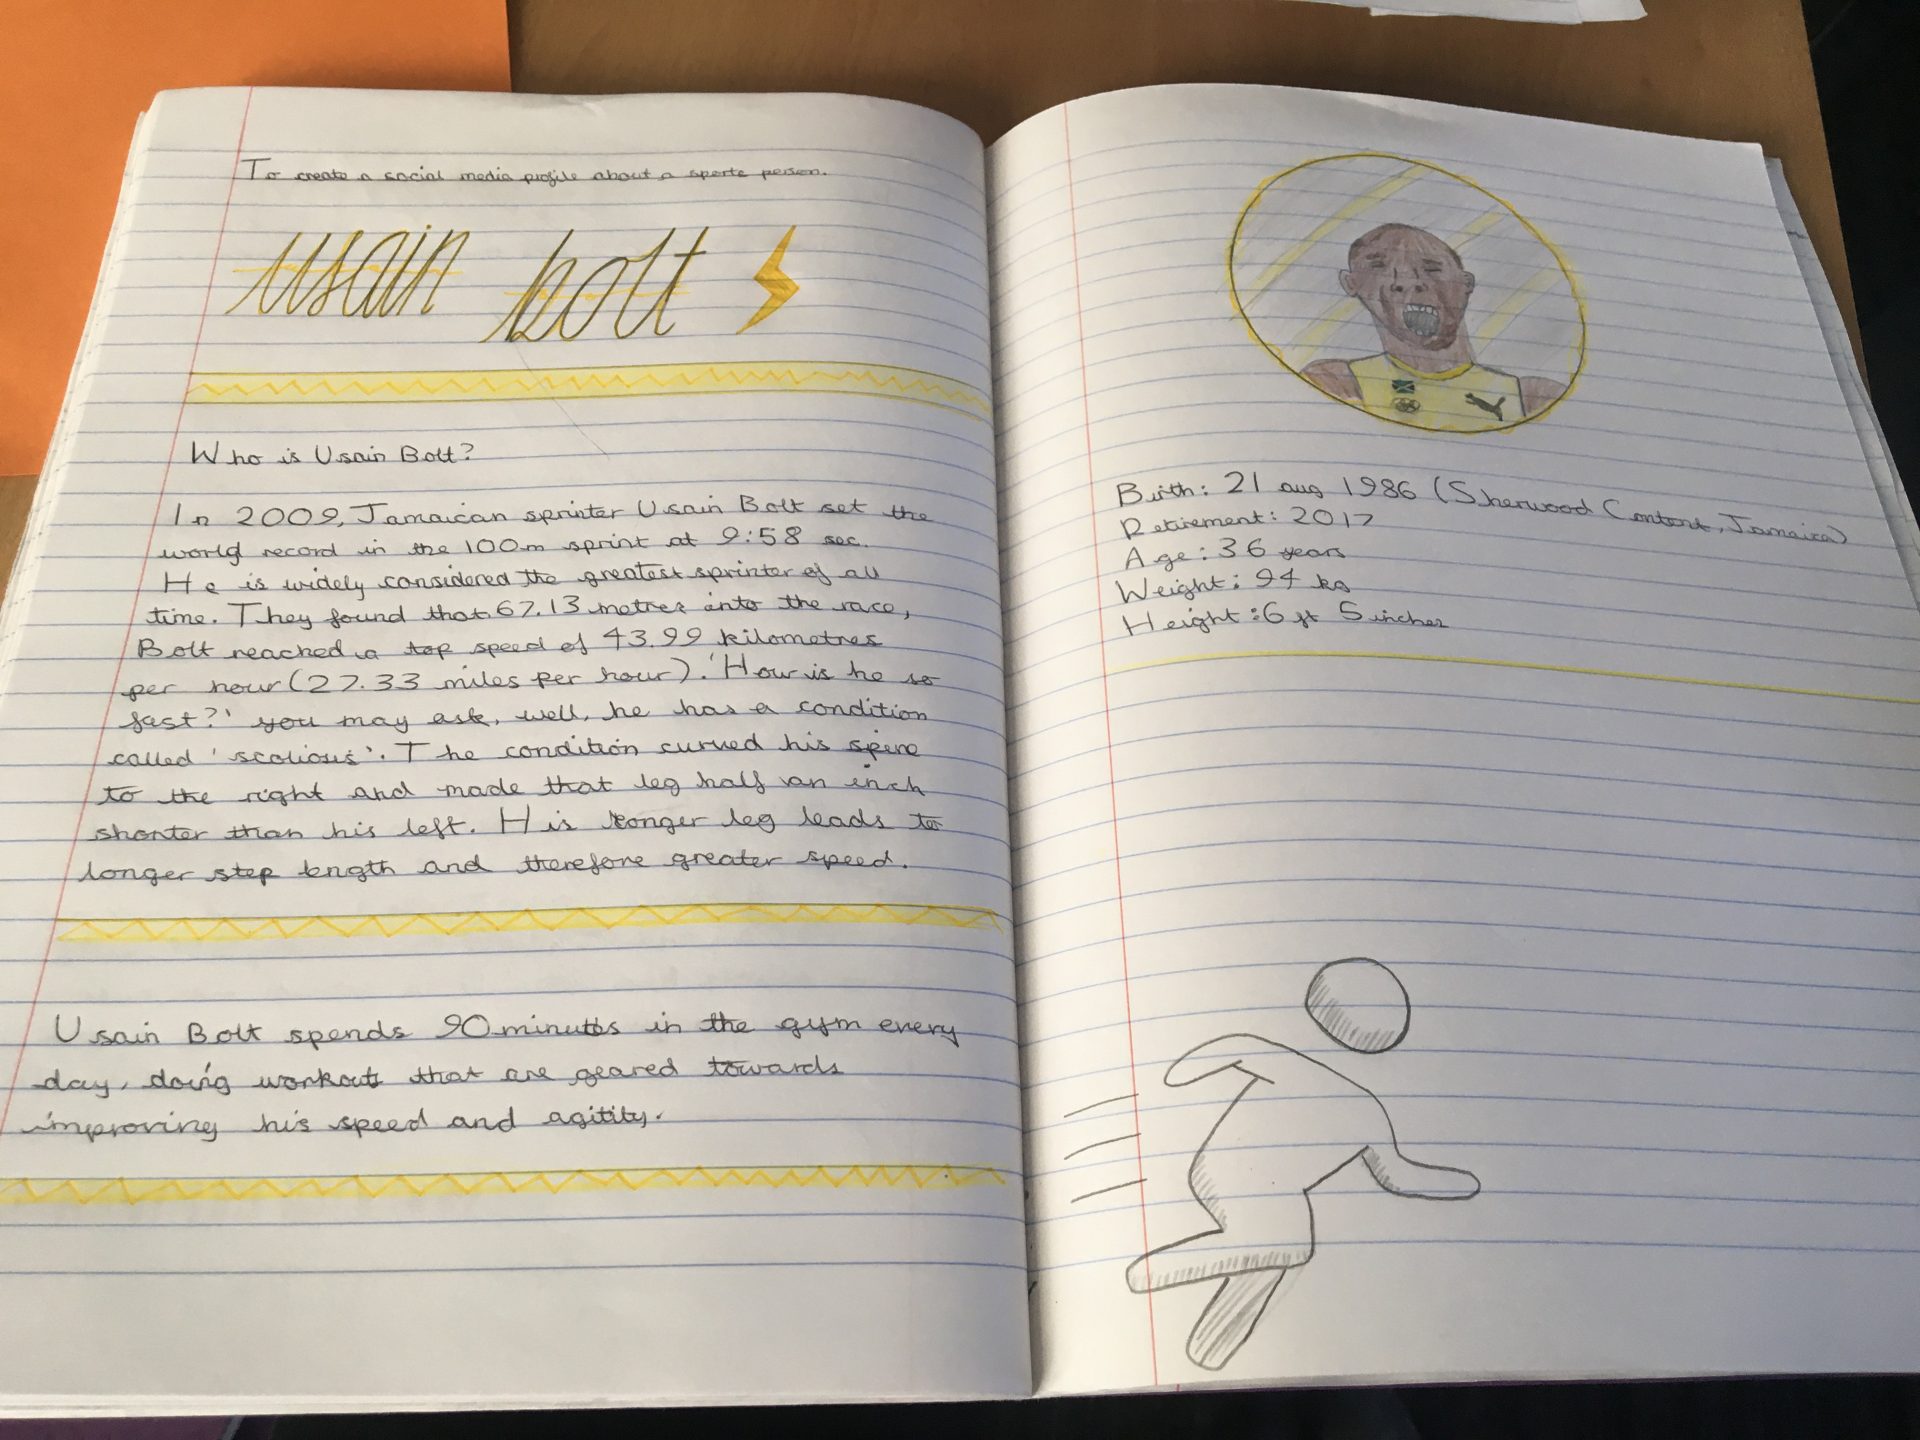 To create a social media profile about a sports person.
usain bolt
Who is Usain Bolt?
In 2009, Jamaican sprinter Usain Bolt set the
world record in the 100m sprint at 9:58 sec.
He is widely considered the greatest sprinter of all
time. They found that 67.13 metres into the race,
Bolt reached a top speed of 43.99 kilometres
per hour (27.33 miles per hour). 'How is he so
fast?' you may ask, well, he has a condition
called 'scoliosis'. The condition curved his spine
to the right and made that leg half an inch
shorter than his left. His longer leg leads to
longer step length and therefore greater speed.
Usain Bolt spends 90 minutes in the gym every
day, doing workouts that are geared towards
improving his speed and agitity.
Birth: 21 aug 1986 (Sherwood Content, Jamaica)
Retirement: 2017
Age: 36 years
Weight: 94 kg
Height: 6 ft 5 inches